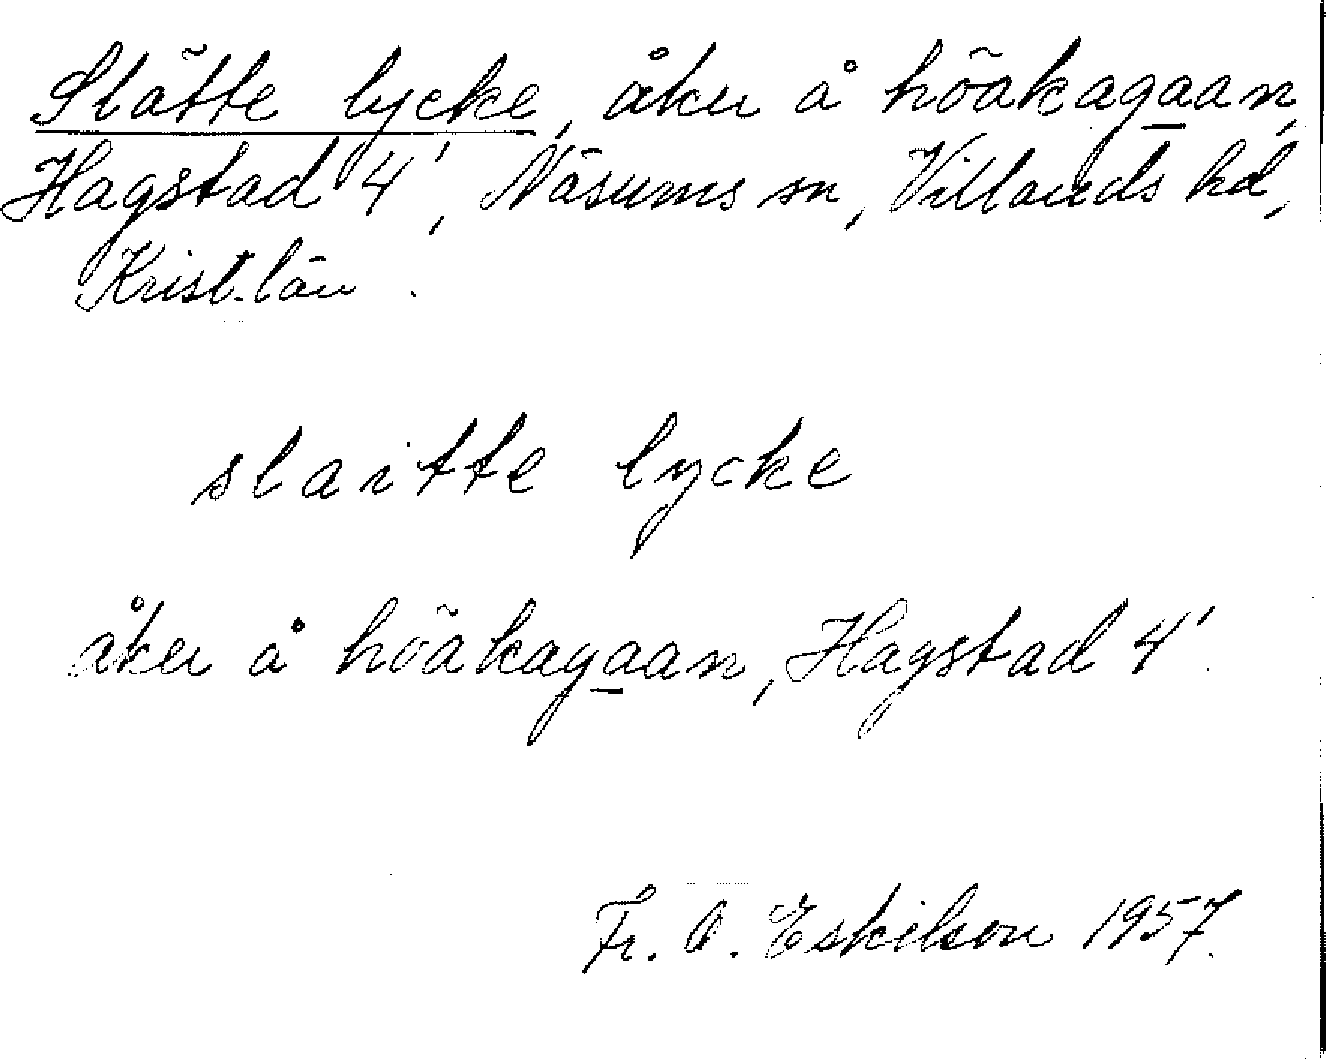 Slätte lycke, åker å höakagaan,
Hagstad 4', Näsums sn, Villands hd,
Krist.län.
slaitte lycke
åker å höakagaan, Hagstad 4'.
Fr. O. Eskilson 1957.